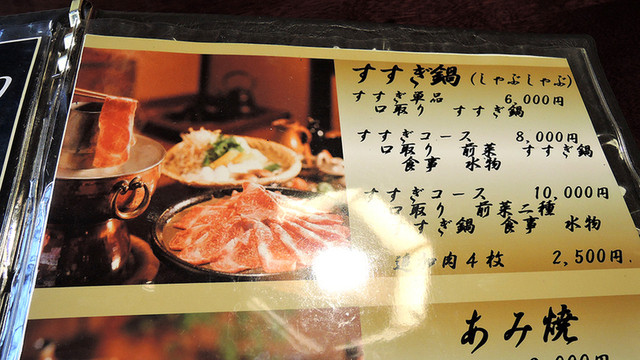 すすぎ鍋 (しゃぶしゃぶ)
すすぎ単品 6,000円
口取り すすぎ鍋
すすぎコース 8,000円
口取り 前菜 すすぎ鍋
食事 水物
すすぎコース 10,000円
口取り 前菜二種
すすぎ鍋 食事 水物
肉4枚 2,500円
あみ焼
000円